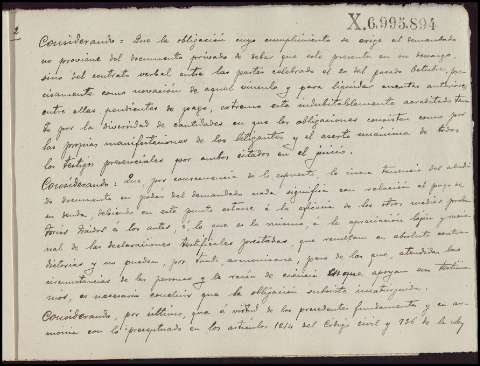 2
X.6.995.894
Considerando = Que la obligación cuyo cumplimiento se exige al demandado
no proviene del documento privado de deber que este presenta en su descargo,
sino del contrato verbal entre las partes celebrado el 20 del pasado Octubre, pre-
cisamente como novación de aquel vinculo y para liquidar cuentas anteriores
entre ellas pendientes de pago, extremo este indubitablemente acreditado tan-
to por la diversidad de cantidades en que las obligaciones consisten como por
las propias manifestaciones de los litigantes y el aserto unánime de todos
los testigos presenciales por ambos citados en el juicio.
Considerando: Que por consecuencia de lo expuesto, la mera tenencia del aludi-
do documento en poder del demandado nada significa con relación al pago de
su deuda, debiendo en este punto estarse á la eficacia de los otros medios proba-
torios traidos á los autos, ó lo que es lo mismo, á la apreciación lógica y racio-
nal de las declaraciones testificales prestadas, que resultan en absoluto contra-
dictorias y no pueden, por tanto armonizarse, pero de las que, atendidas las
circunstancias de las personas y la razón de ciencia en que apoyan sus testimo-
nios, es necesario concluir que la obligación subsiste
Considerando, por último, que á virtud de los precedentes fundamentos y en ar-
monia con lo preceptuado en los artículos 1214 del Código civil y 736 de la ley